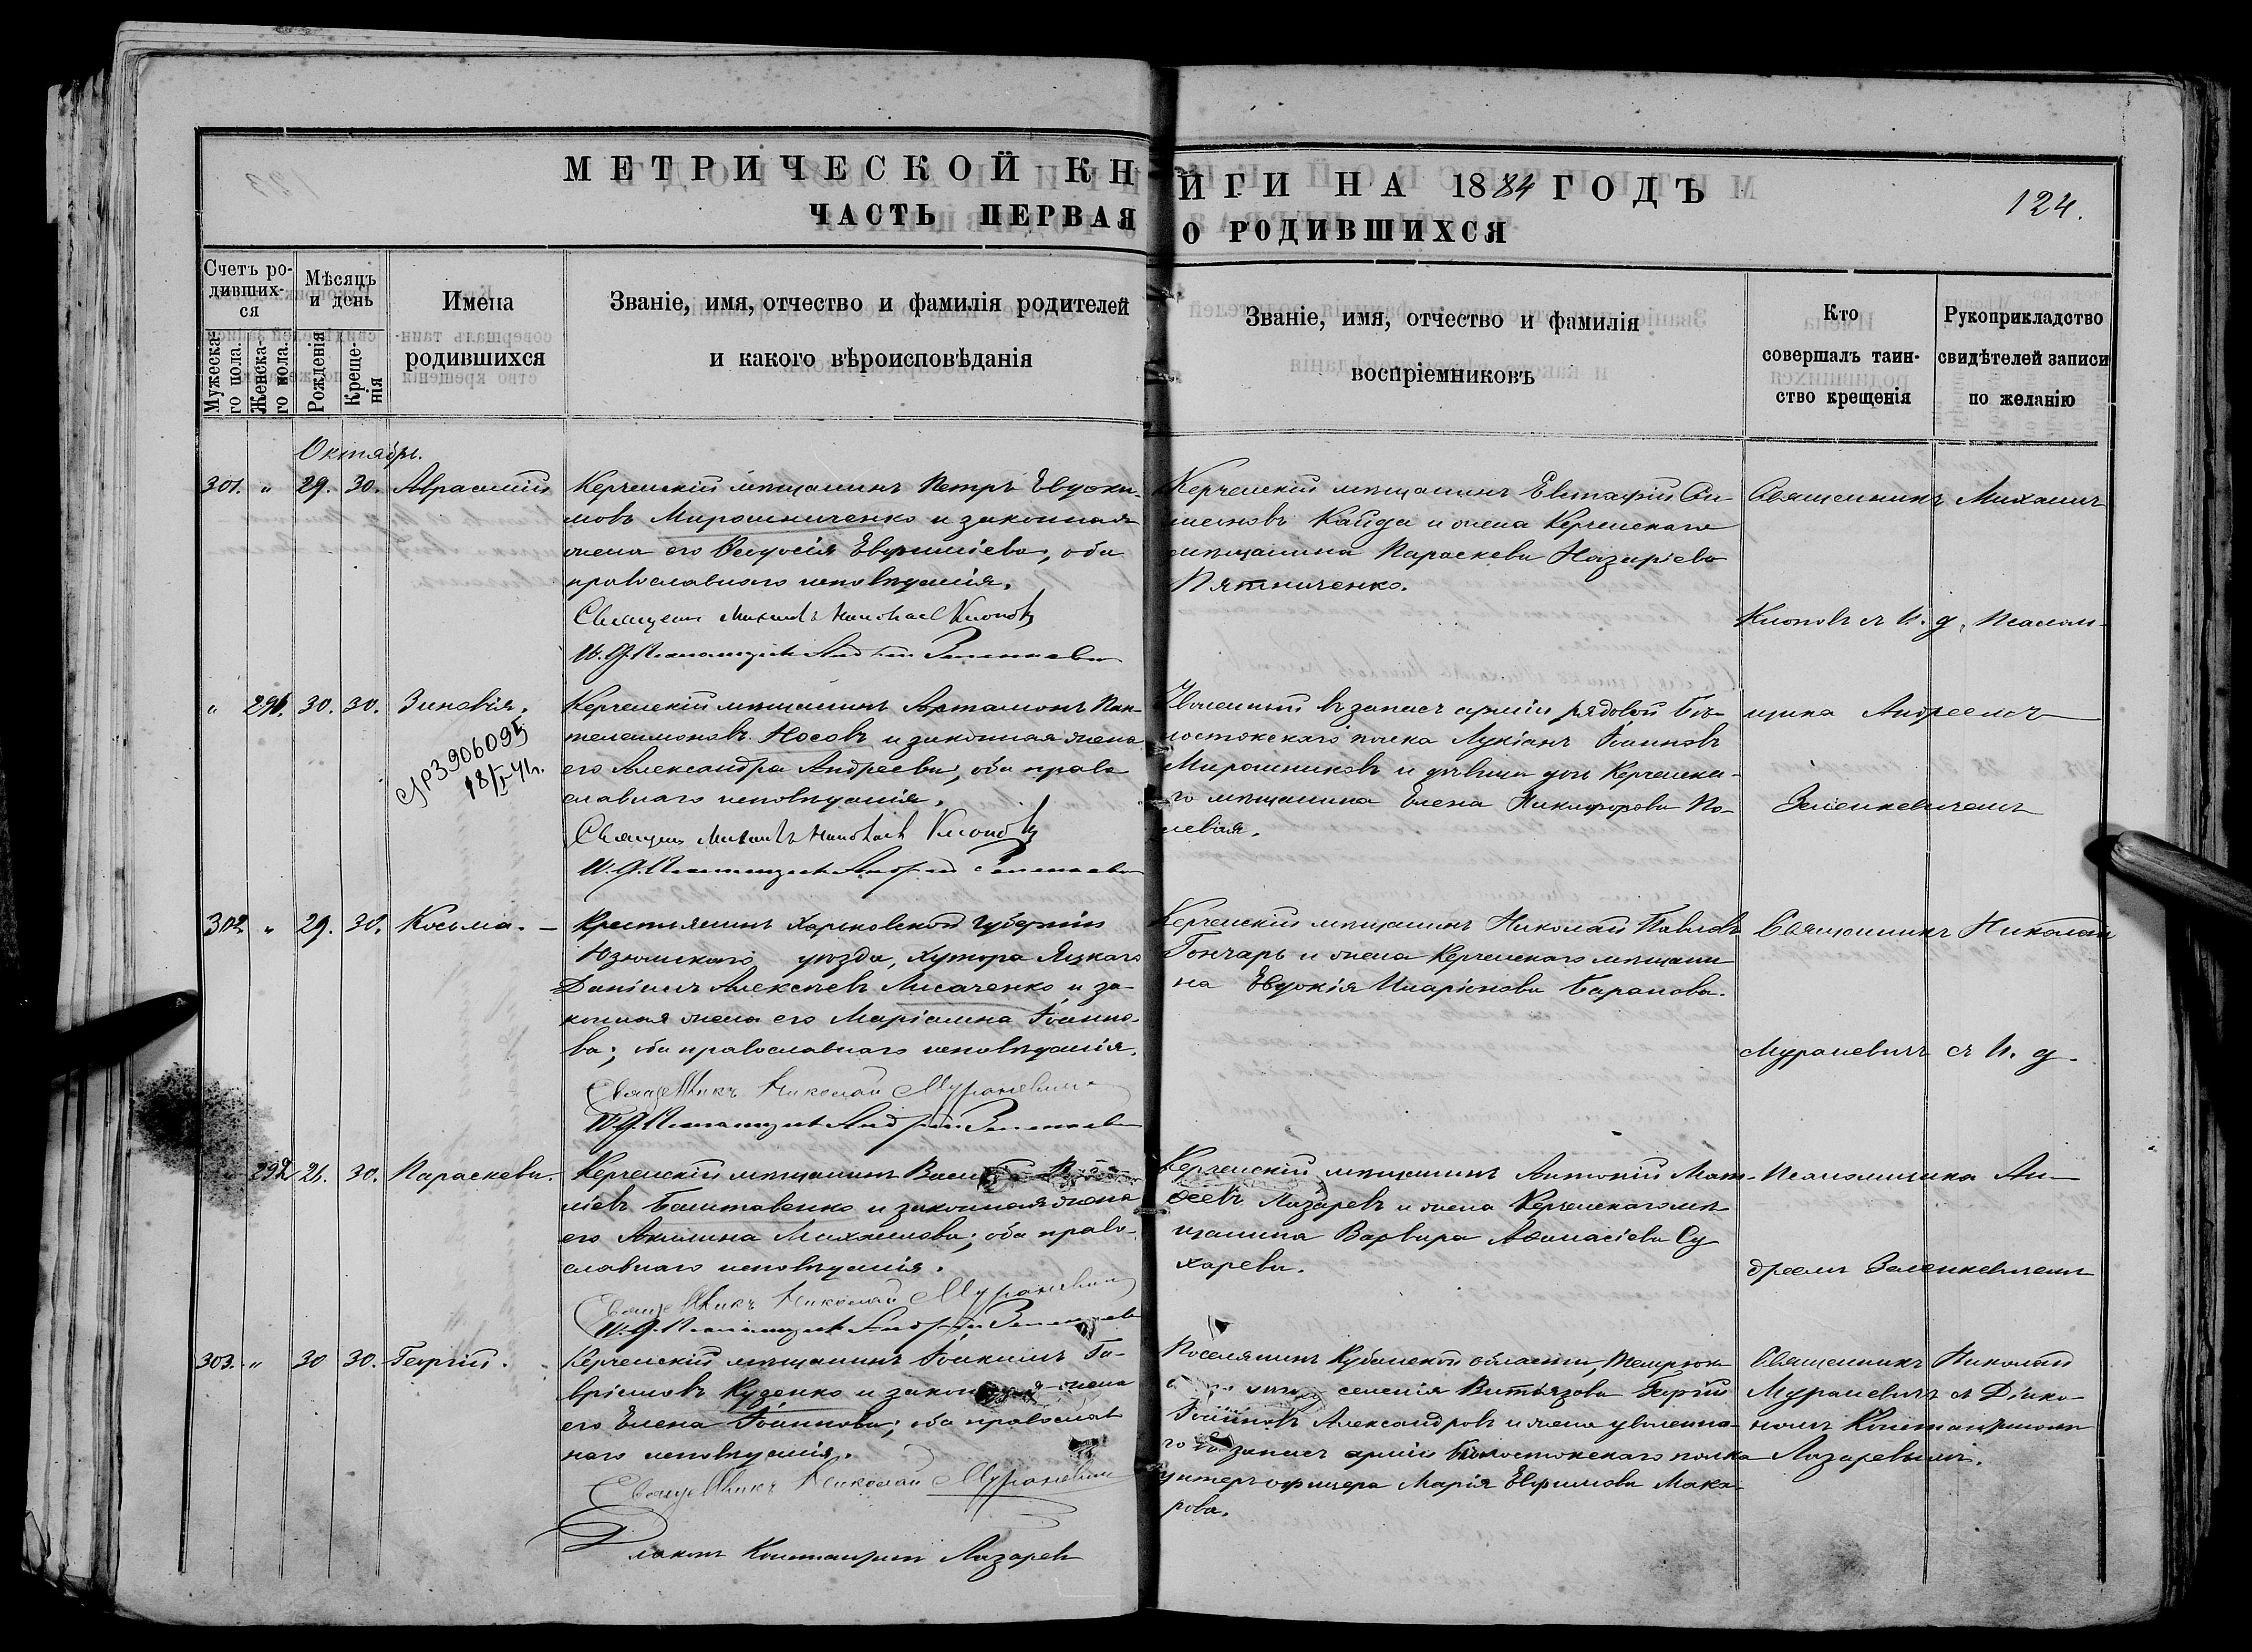 МЕТРИЧЕСКОЙ КНИГИ НА 1884 ГОДЪ
124.
ЧАСТЬ ПЕРВАЯ О РОДИВШИХСЯ
Счетъ ро-
дивших-
ся
Мужеска-
го пола.
Женска-
го пола.
Мѣсяцъ
и день
Рожденія
Креще-
нія
Имена
родившихся
Званіе, имя, отчество и фамилія родителей
и какого вѣроисповѣданія
Званіе, имя, отчество и фамилія
воспріемниковъ
Кто
совершалъ таин-
ство крещенія
Рукоприкладство
свидѣтелей записи
по желанію
Октябрь.
301. " 29. 30. Авраамій
Керченскій мѣщанинъ Петръ Евдоки-
мовъ Мирошниченко и законная
жена его Ѳеодосія; оба
православнаго исповѣданія.
Священ Михаилъ Клоповъ
И. Д. Псаломщика Андрей Зеленкевич
Керченскій мѣщанинъ Евстафій Си-
меоновъ Кайда и жена Керченскаго
мѣщанина Параскева Назаріева
Пятниченко.
Священникъ Михаилъ
Клоповъ съ И. д. Псалом-
" 291. 30. 30. Зиновія.
СР3906095
18/I-41г.
Керченскій мѣщанинъ Артамонъ Пан-
телеимоновъ Носовъ и законная жена
его Александра Андреева; оба право
славнаго исповѣданія.
Священ Михаилъ Клоповъ
И. Д. Псаломщика Андрей Зеленкевич
Уволенный въ запасъ арміи рядовой Бѣ-
лостокскаго полка Лукіанъ Іоанновъ
Мирошниковъ и дѣвица дочь Керченска-
го мѣщанина Елена Никифорова По-
левая.
щика Андреемъ
Зеленкевичемъ
302. " 29. 30. Косьма. –
Крестьянинъ Харьковской губерніи
Изюмскаго уѣзда, хутора Яцкаго
Даніилъ Алексѣевъ Лисаченко и за-
конная жена его Маріанна Іоанно-
ва; оба православнаго исповѣданія.
Священникъ Николай Мураневичъ
И. Д. Псаломщика Андрей Зеленкевич
Керченскій мѣщанинъ Николай Павловъ
Гончаръ и жена Керченскаго мѣщани
на Евдокія Иларіонова Баранова.
Священникъ Николай
Мураневичъ съ И. д.
292 26. 30. Параскева.
Керченскій мѣщанинъ
ніевъ Баштавенко и законная жена
его Акилина Михаилова; оба право-
славнаго исповѣданія.
Священникъ Николай Мураневичъ
И. Д. Псаломщика Андрей Зеленкевич
Керченскій мѣщанинъ Антоній Мат-
ѳеевъ Лазаревъ и жена Керченскаго мѣ
щанина Варвара Аѳанасіева Су
харева.
Псаломщика Ан-
дреемъ Зеленкевичемъ
303. " 30 30. Георгій.
Керченскій мѣщанинъ Іоакимъ Га-
вріиловъ Куденко и законная жена
его Елена Іоаннова; оба православ
наго исповѣданія.
Священникъ Николай Мураневичъ
Діаконъ Константинъ Лазаревъ
Поселянинъ Кубанской области, Темрюк
селенія Витязева Георгій
Іоанновъ Александровъ и жена уволенна-
го въ запасъ арміи Бѣлостокскаго полка
унтеръ офицера Марія Евфимова Мака-
рова.
Священникъ Николай
Мураневичъ съ Діако-
номъ Константиномъ
Лазаревымъ.